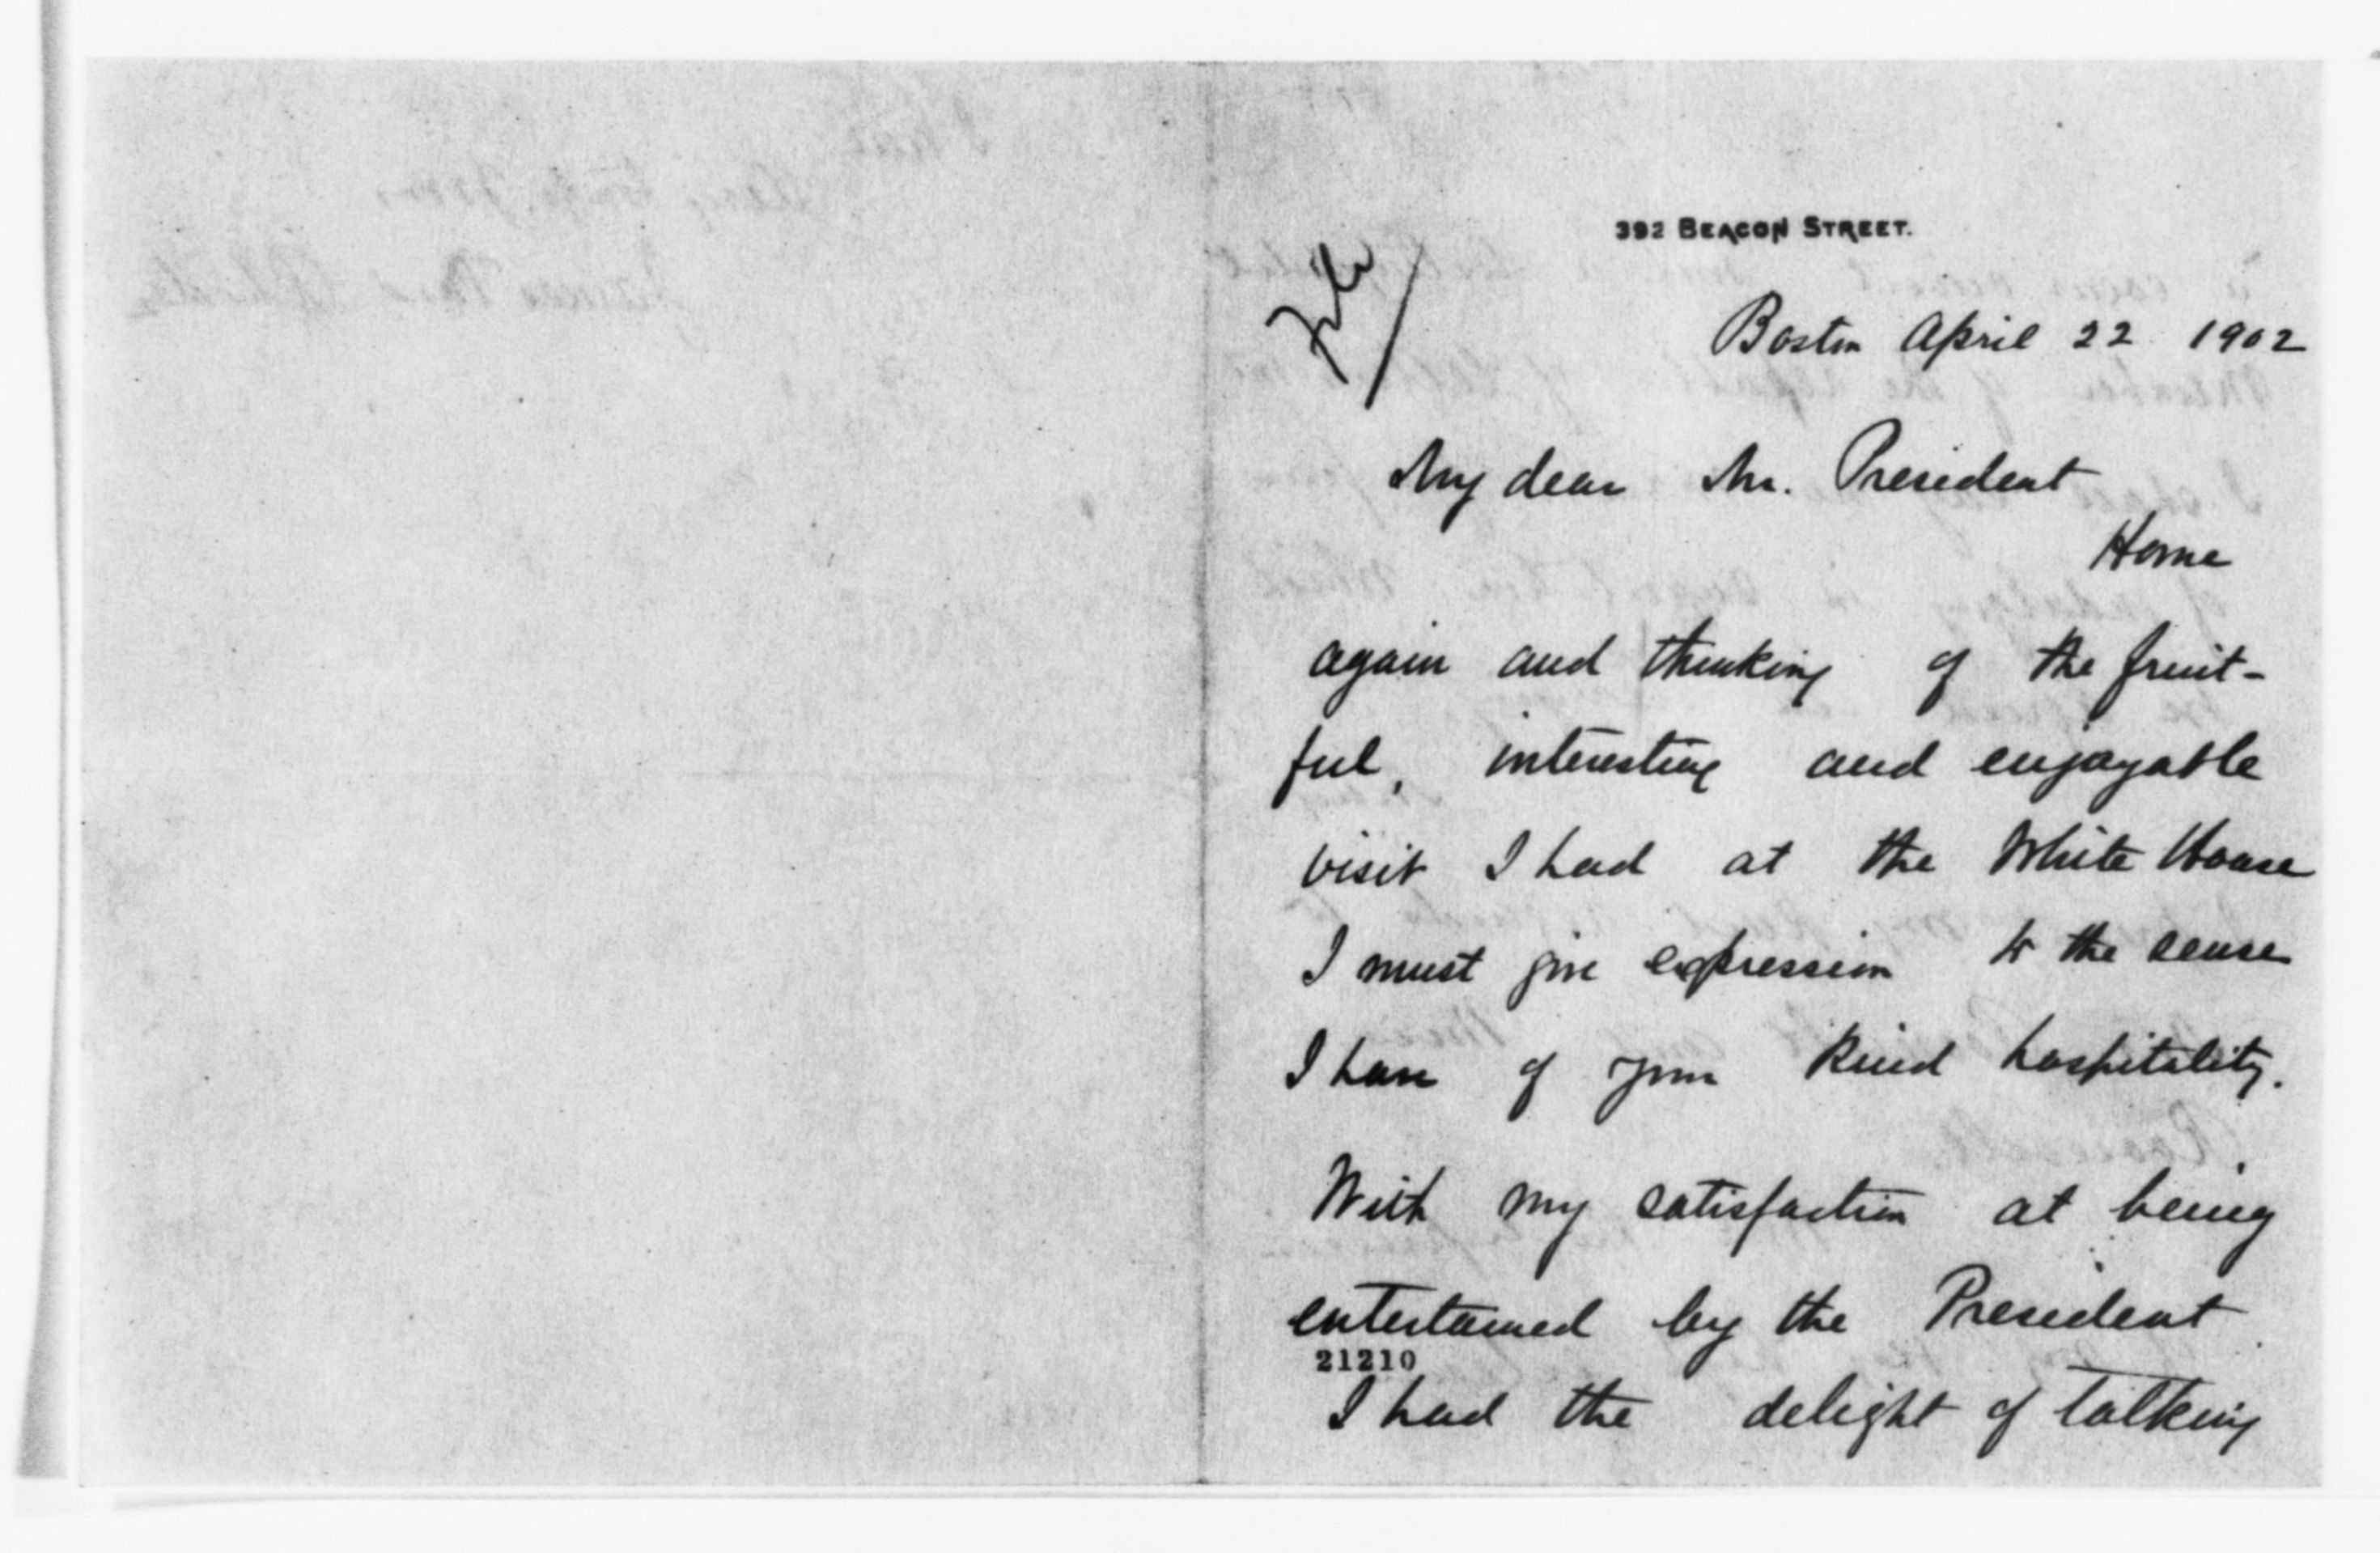 392 BEACON STREET.
File
Boston April 22 1902
My dear Mr. President
Home
again and thinking of the fruit-
ful, interesting and enjoyable
visit I had at the White House
I must give expression to the sense
I have of your kind hospitality.
With my satisfaction at being
entertained by the President
21210
I had the delight of talking